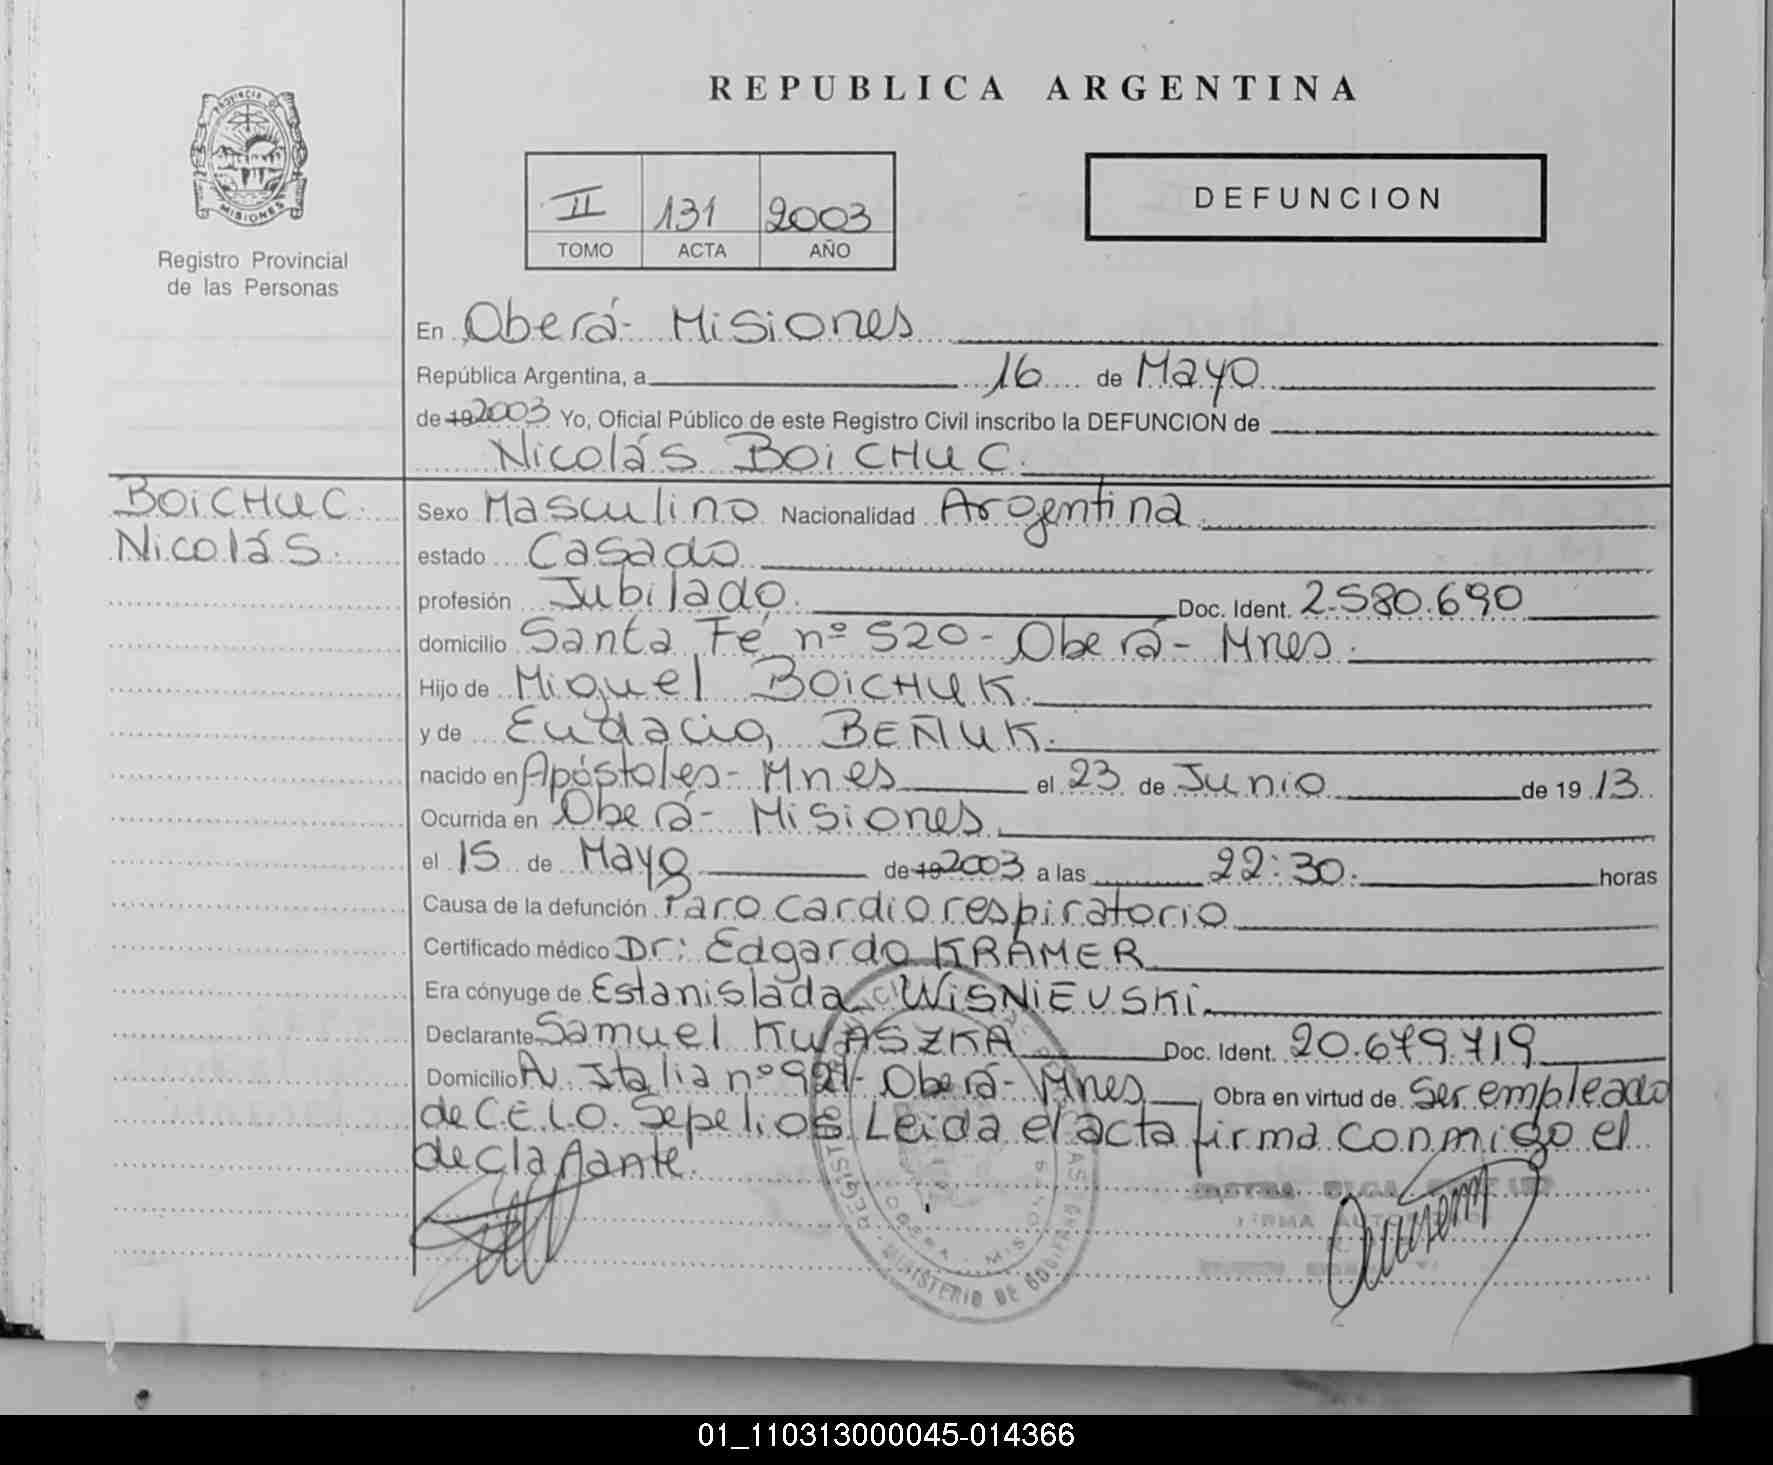 REPUBLICA ARGENTINA
PROVINCIA DE
MISIONES
Registro Provincial
de las Personas
II 131 2003
TOMO ACTA AÑO
DEFUNCION
En Oberá - Misiones
República Argentina, a 16 de Mayo
de 19 2003 Yo, Oficial Público de este Registro Civil inscribo la DEFUNCION de
Nicolás BOICHUC
BOICHUC
Nicolás
Sexo Masculino Nacionalidad Argentina
estado Casado
profesión Jubilado. Doc. Ident. 2.580.690
domicilio Santa Fé nº 520 - Oberá - Mnes.
Hijo de Miguel BOICHUK.
y de BEÑUK.
nacido en Apóstoles - Mnes el 23 de Junio de 19 13.
Ocurrida en Oberá - Misiones
el 15 de Mayo de 19 2003 a las 22:30. horas
Causa de la defunción Paro cardiorespiratorio
Certificado médico Dr: Edgardo KRAMER
Era cónyuge de Estanislada WISNIEVSKI.
Declarante Samuel KWASZKA Doc. Ident. 20.679.719
Domicilio Av. Italia nº 921 - Oberá - Mnes Obra en virtud de Ser empleado
de C.E.L.O. Sepelios Leida el acta firma conmigo el
declarante.
MINISTERIO DE
OBERA - MISIONES
01_110313000045-014366